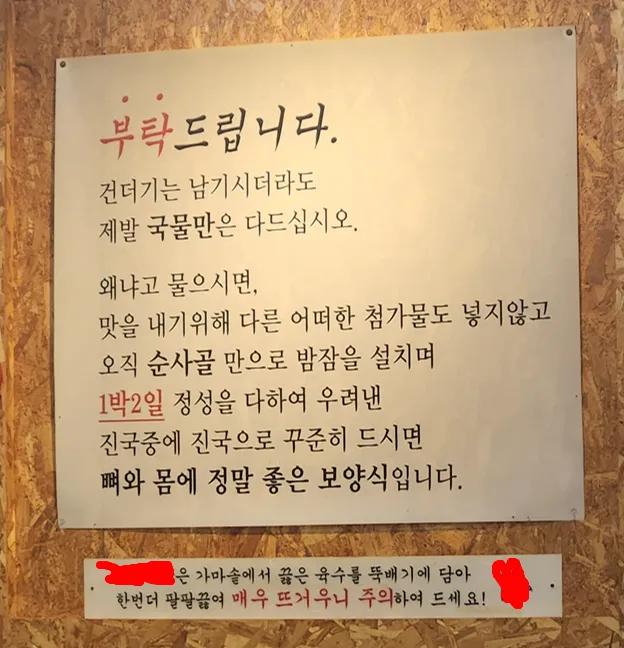 부탁드립니다.
건더기는 남기시더라도
제발 국물만은 다드십시오.
왜냐고 물으시면,
맛을 내기위해 다른 어떠한 첨가물도 넣지않고
오직 순사골 만으로 밤잠을 설치며
1박2일 정성을 다하여 우려낸
진국중에 진국으로 꾸준히 드시면
뼈와 몸에 정말 좋은 보양식입니다.
은 가마솥에서 끓은 육수를 뚝배기에 담아
한번더 팔팔끓여 매우 뜨거우니 주의하여 드세요!